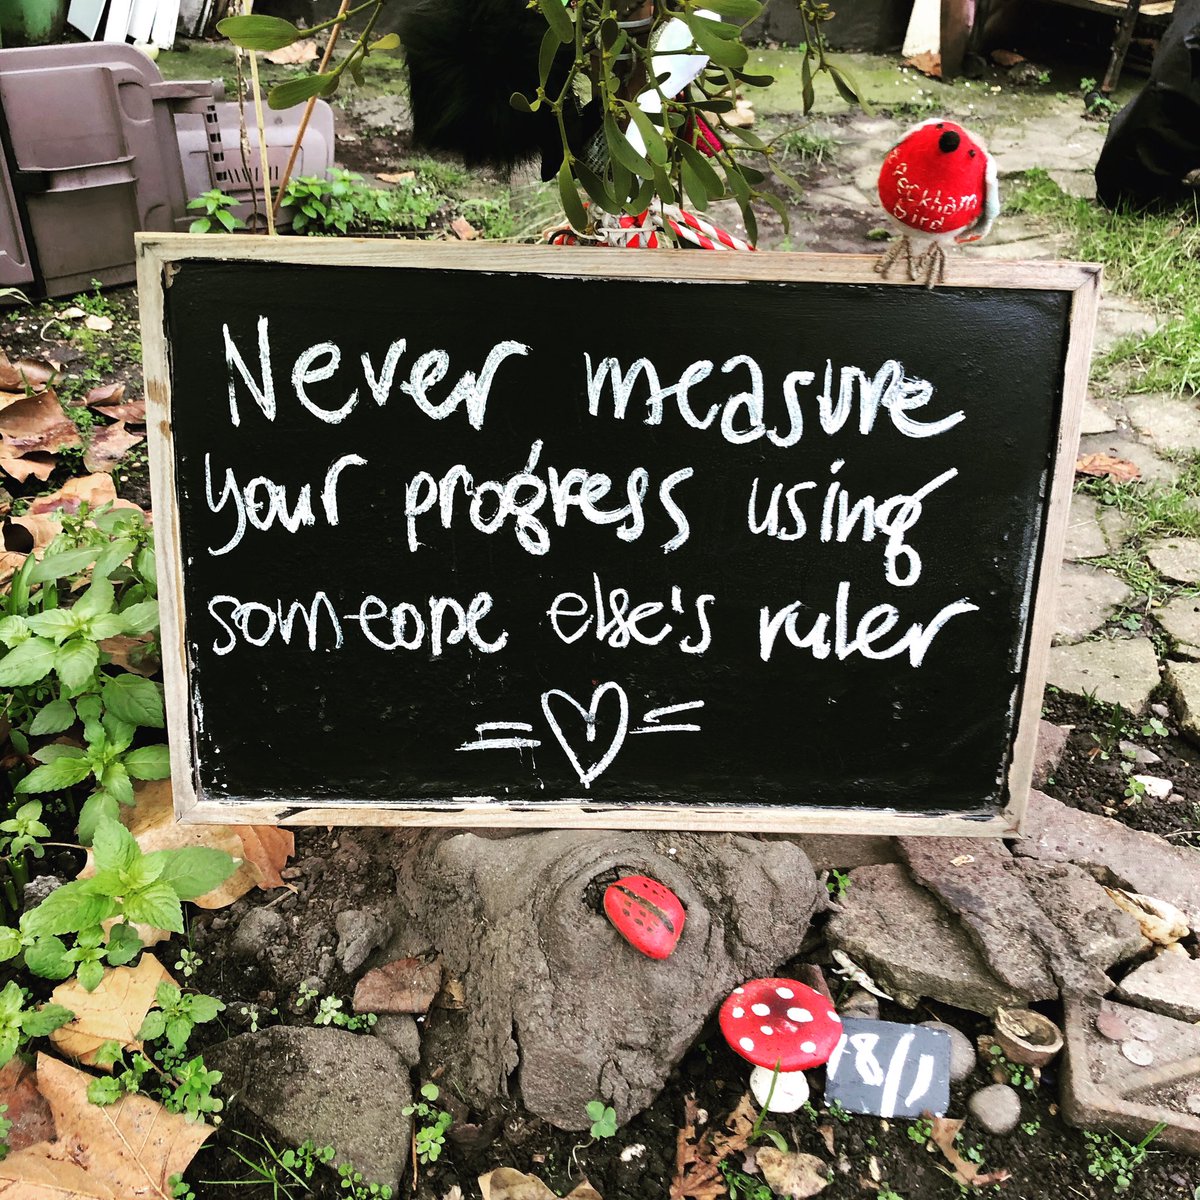 Peckham
bird
Never measure
your progress using
someone else's ruler
18/1